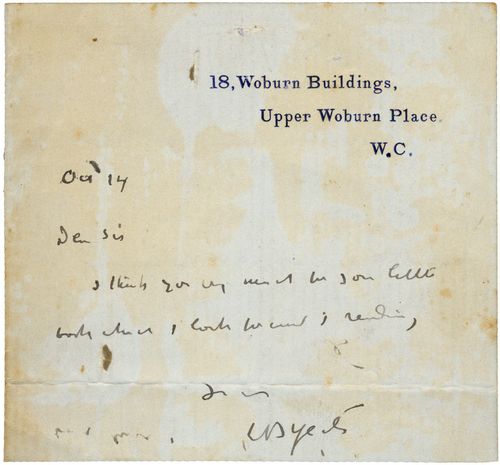 18, Woburn Buildings,
Upper Woburn Place.
W.C.
Oct 14
Dear Sir
I thank you very much for your little
book which I look forward to reading
Yours
WB Yeats